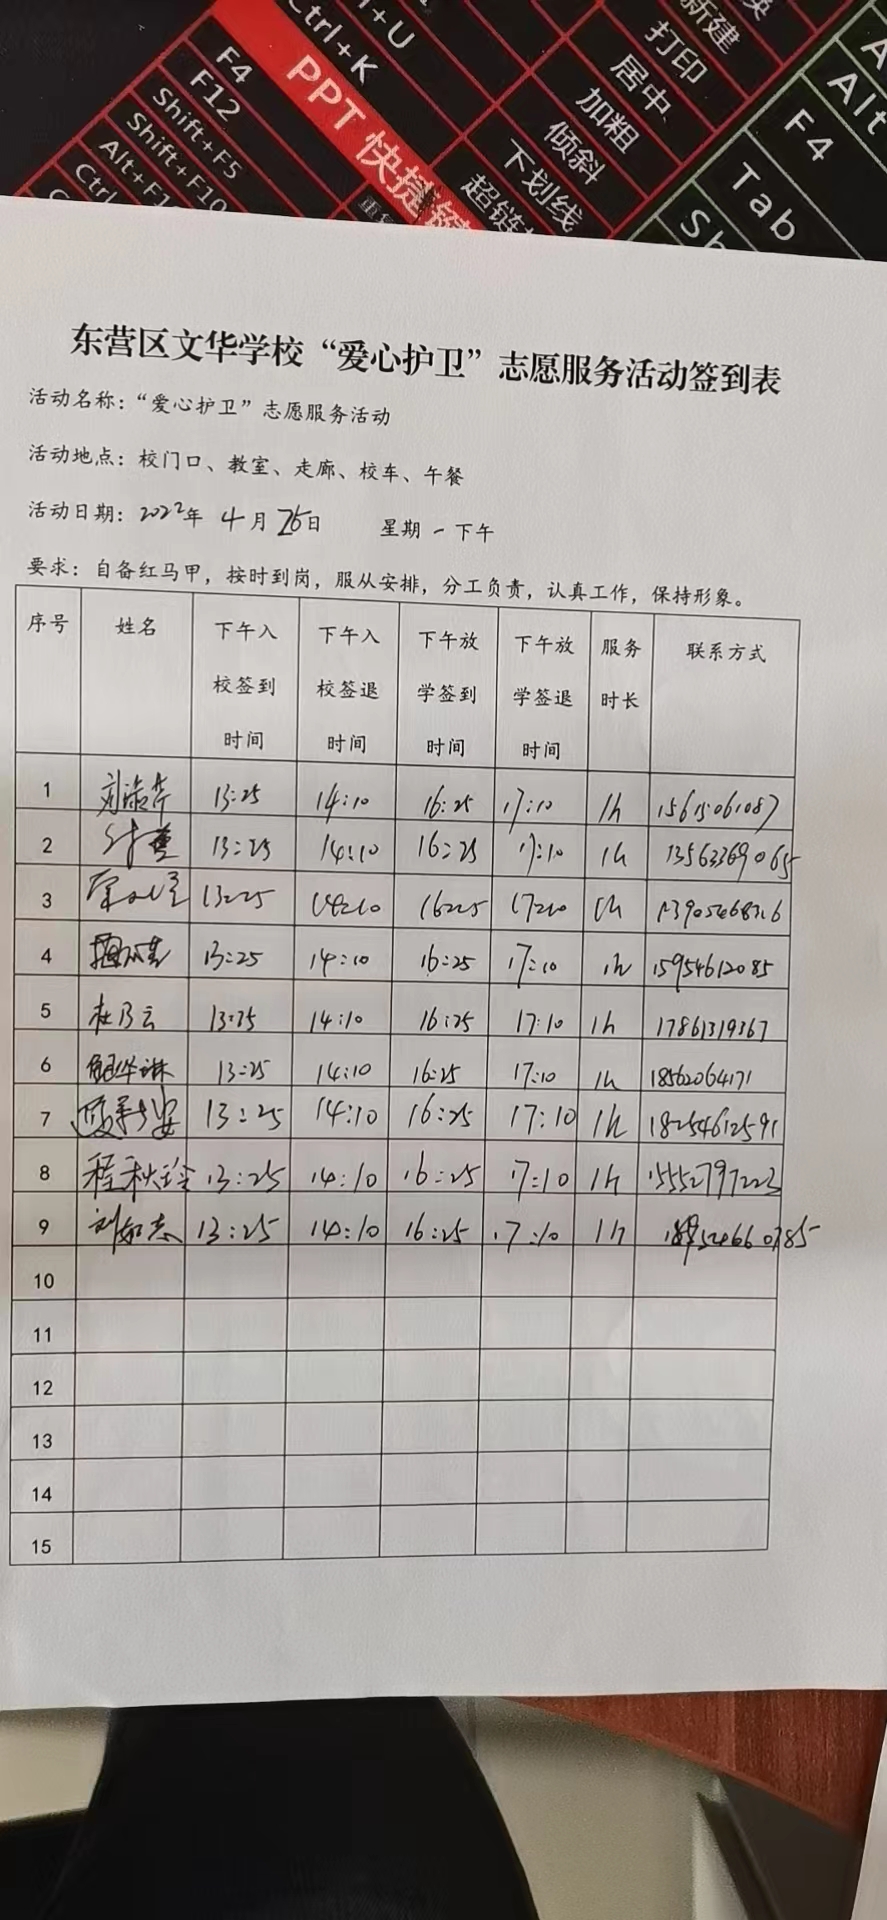 Ctrl+U
Ctrl+K
PPT 快捷键
F4
F12
Shift+F5
Shift+F10
Alt+F1
Ctrl
新建
打印
居中
加粗
倾斜
下划线
超链
Alt
F4
Tab
Sh
东营区文华学校“爱心护卫”志愿服务活动签到表
活动名称：“爱心护卫”志愿服务活动
活动地点：校门口、教室、走廊、校车、午餐
活动日期：2022年 4月 25日 星期一下午
要求：自备红马甲，按时到岗，服从安排，分工负责，认真工作，保持形象。
序号 姓名 下午入校签到时间 下午入校签退时间 下午放学签到时间 下午放学签退时间 服务时长 联系方式
1 13:25 14:10 16:25 17:10 1h 15615061087
2 13:25 14:10 16:25 17:10 1h 13563369065
3 13:25 14:10 16:25 17:10 1h
4 13:25 14:10 16:25 17:10 1h 15954612085
5 杜乃云 13:25 14:10 16:25 17:10 1h 17861319367
6 13:25 14:10 16:25 17:10 1h 18562064171
7 13:25 14:10 16:25 17:10 1h 18254612591
8 程秋玲 13:25 14:10 16:25 17:10 1h 15552797223
9 刘如志 13:25 14:10 16:25 17:10 1h
10
11
12
13
14
15